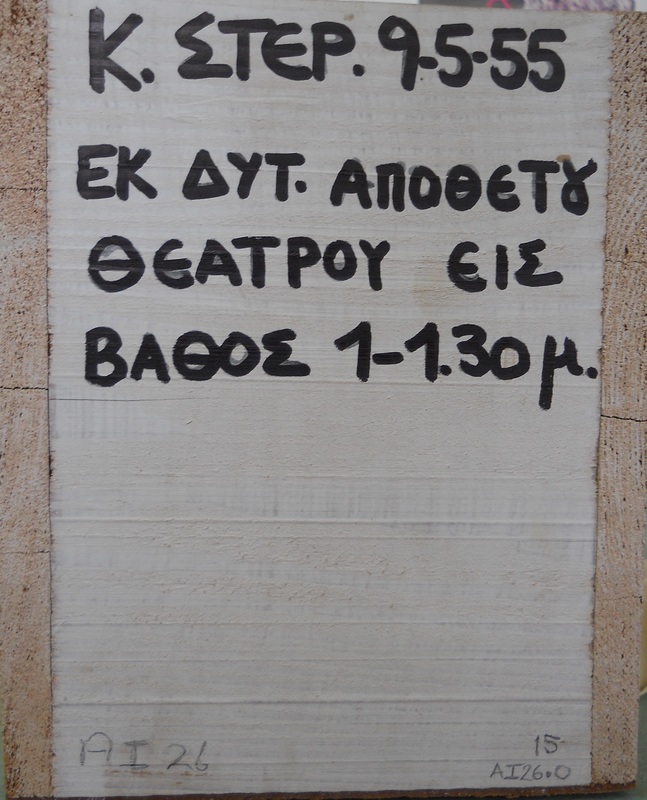 Κ. ΣΤΕΡ. 9-5-55
ΕΚ ΔΥΤ. ΑΠΟΘΕΤȢ
ΘΕΑΤΡΟΥ ΕΙΣ
ΒΑΘΟΣ 1-1.30 μ.
AI 26
15
AI26.0